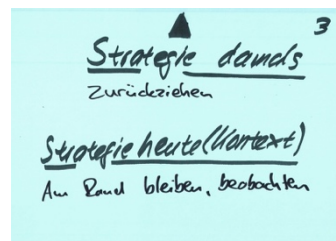 3
Strategie damals
Zurückziehen
Strategie heute (Kontext)
Am Rand bleiben, beobachten